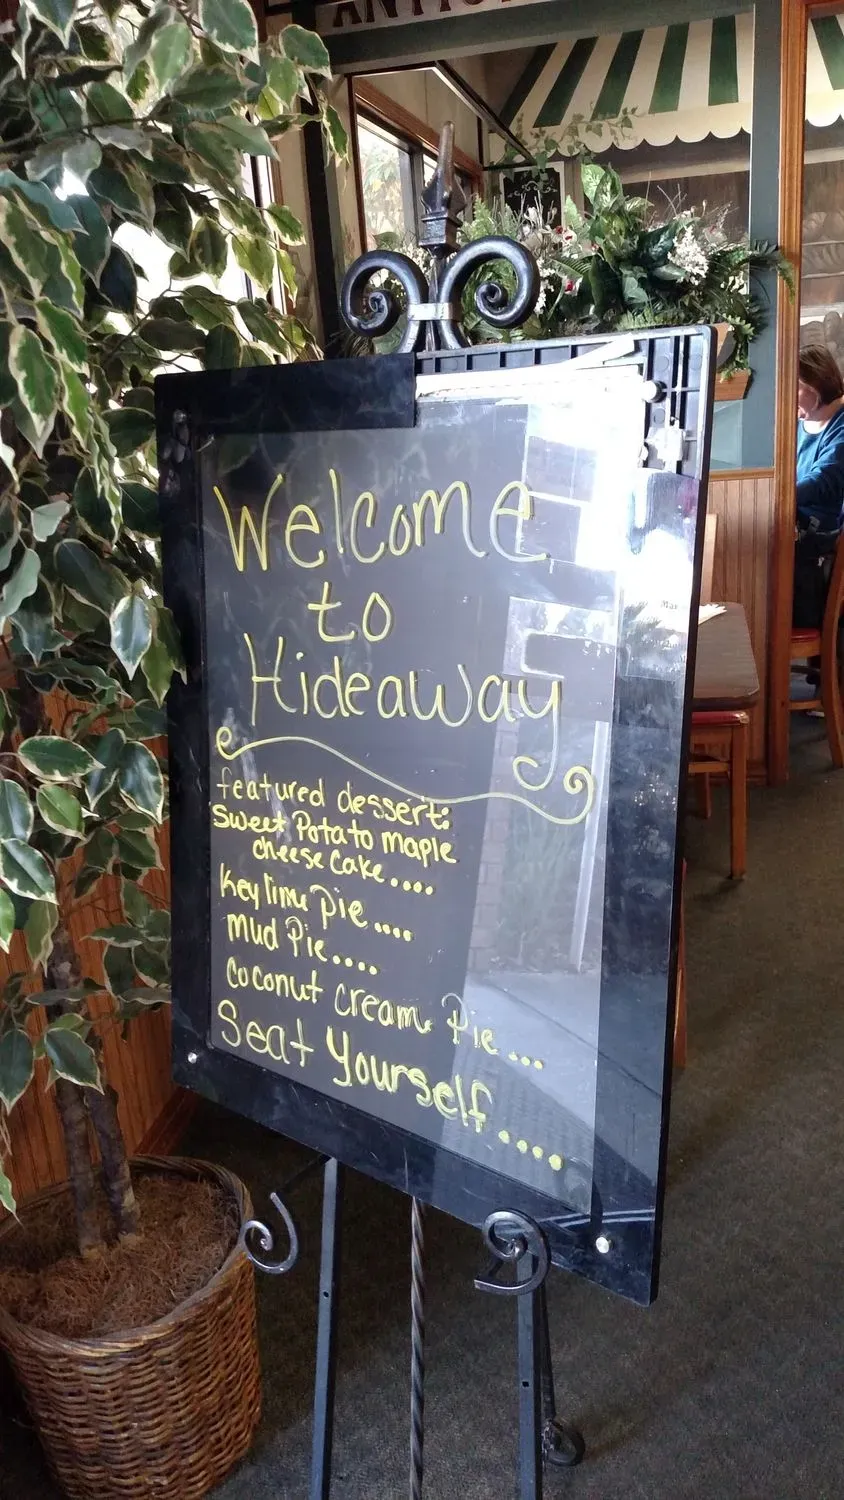 Welcome
to
Hideaway
featured dessert:
Sweet Potato maple
cheese cake....
Key lime Pie....
Mud Pie....
coconut cream Pie...
Seat Yourself....